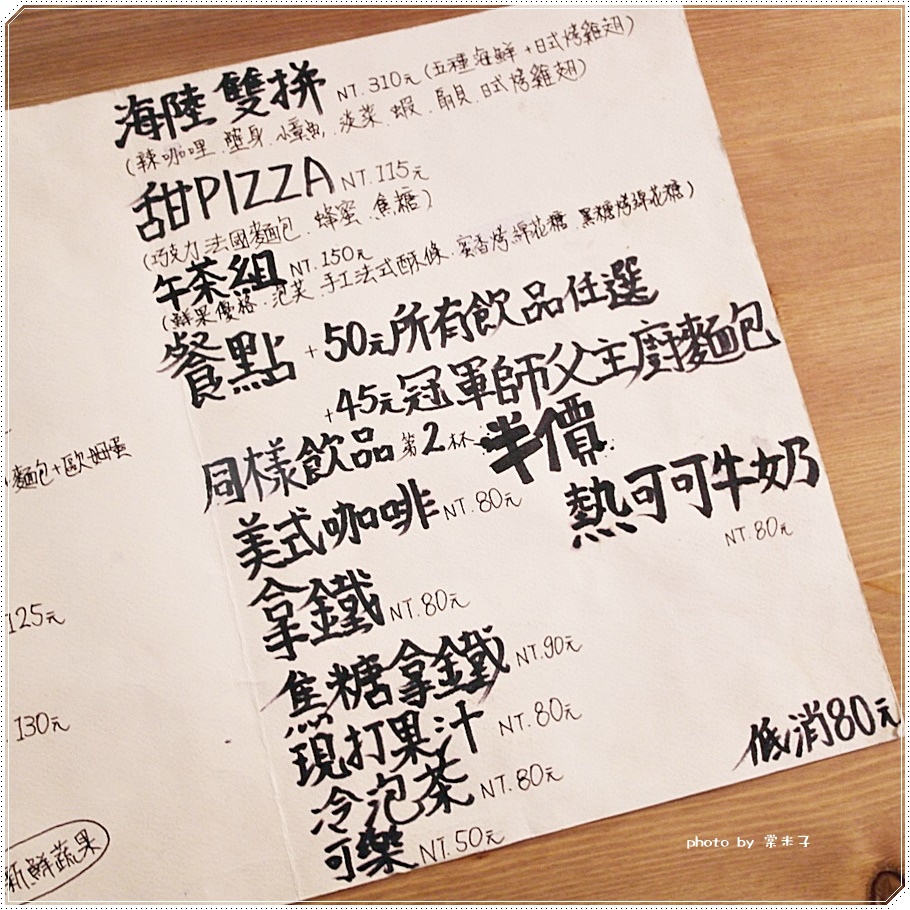 海陸雙拼 NT.310元(五種海鮮+日式烤雞翅)
(辣咖哩.蟹身.小章魚.淡菜.蝦.扇貝.日式烤雞翅)
甜PIZZA NT.115元
(巧克力法國麵包.蜂蜜.焦糖)
午茶組 NT.150元
(鮮果優格.泡芙.手工法式酥條.蜜香烤綿花糖.黑糖烤綿花糖)
餐點 +50元所有飲品任選
+45元冠軍師父主廚麵包
同樣飲品第2杯半價
美式咖啡 NT.80元
熱可可牛奶
NT.80元
拿鐵 NT.80元
焦糖拿鐵 NT.90元
現打果汁 NT.80元
冷泡茶 NT.80元
可樂 NT.50元
低消80元
麵包+歐姆蛋
125元
130元
新鮮蔬果
photo by 棠未子